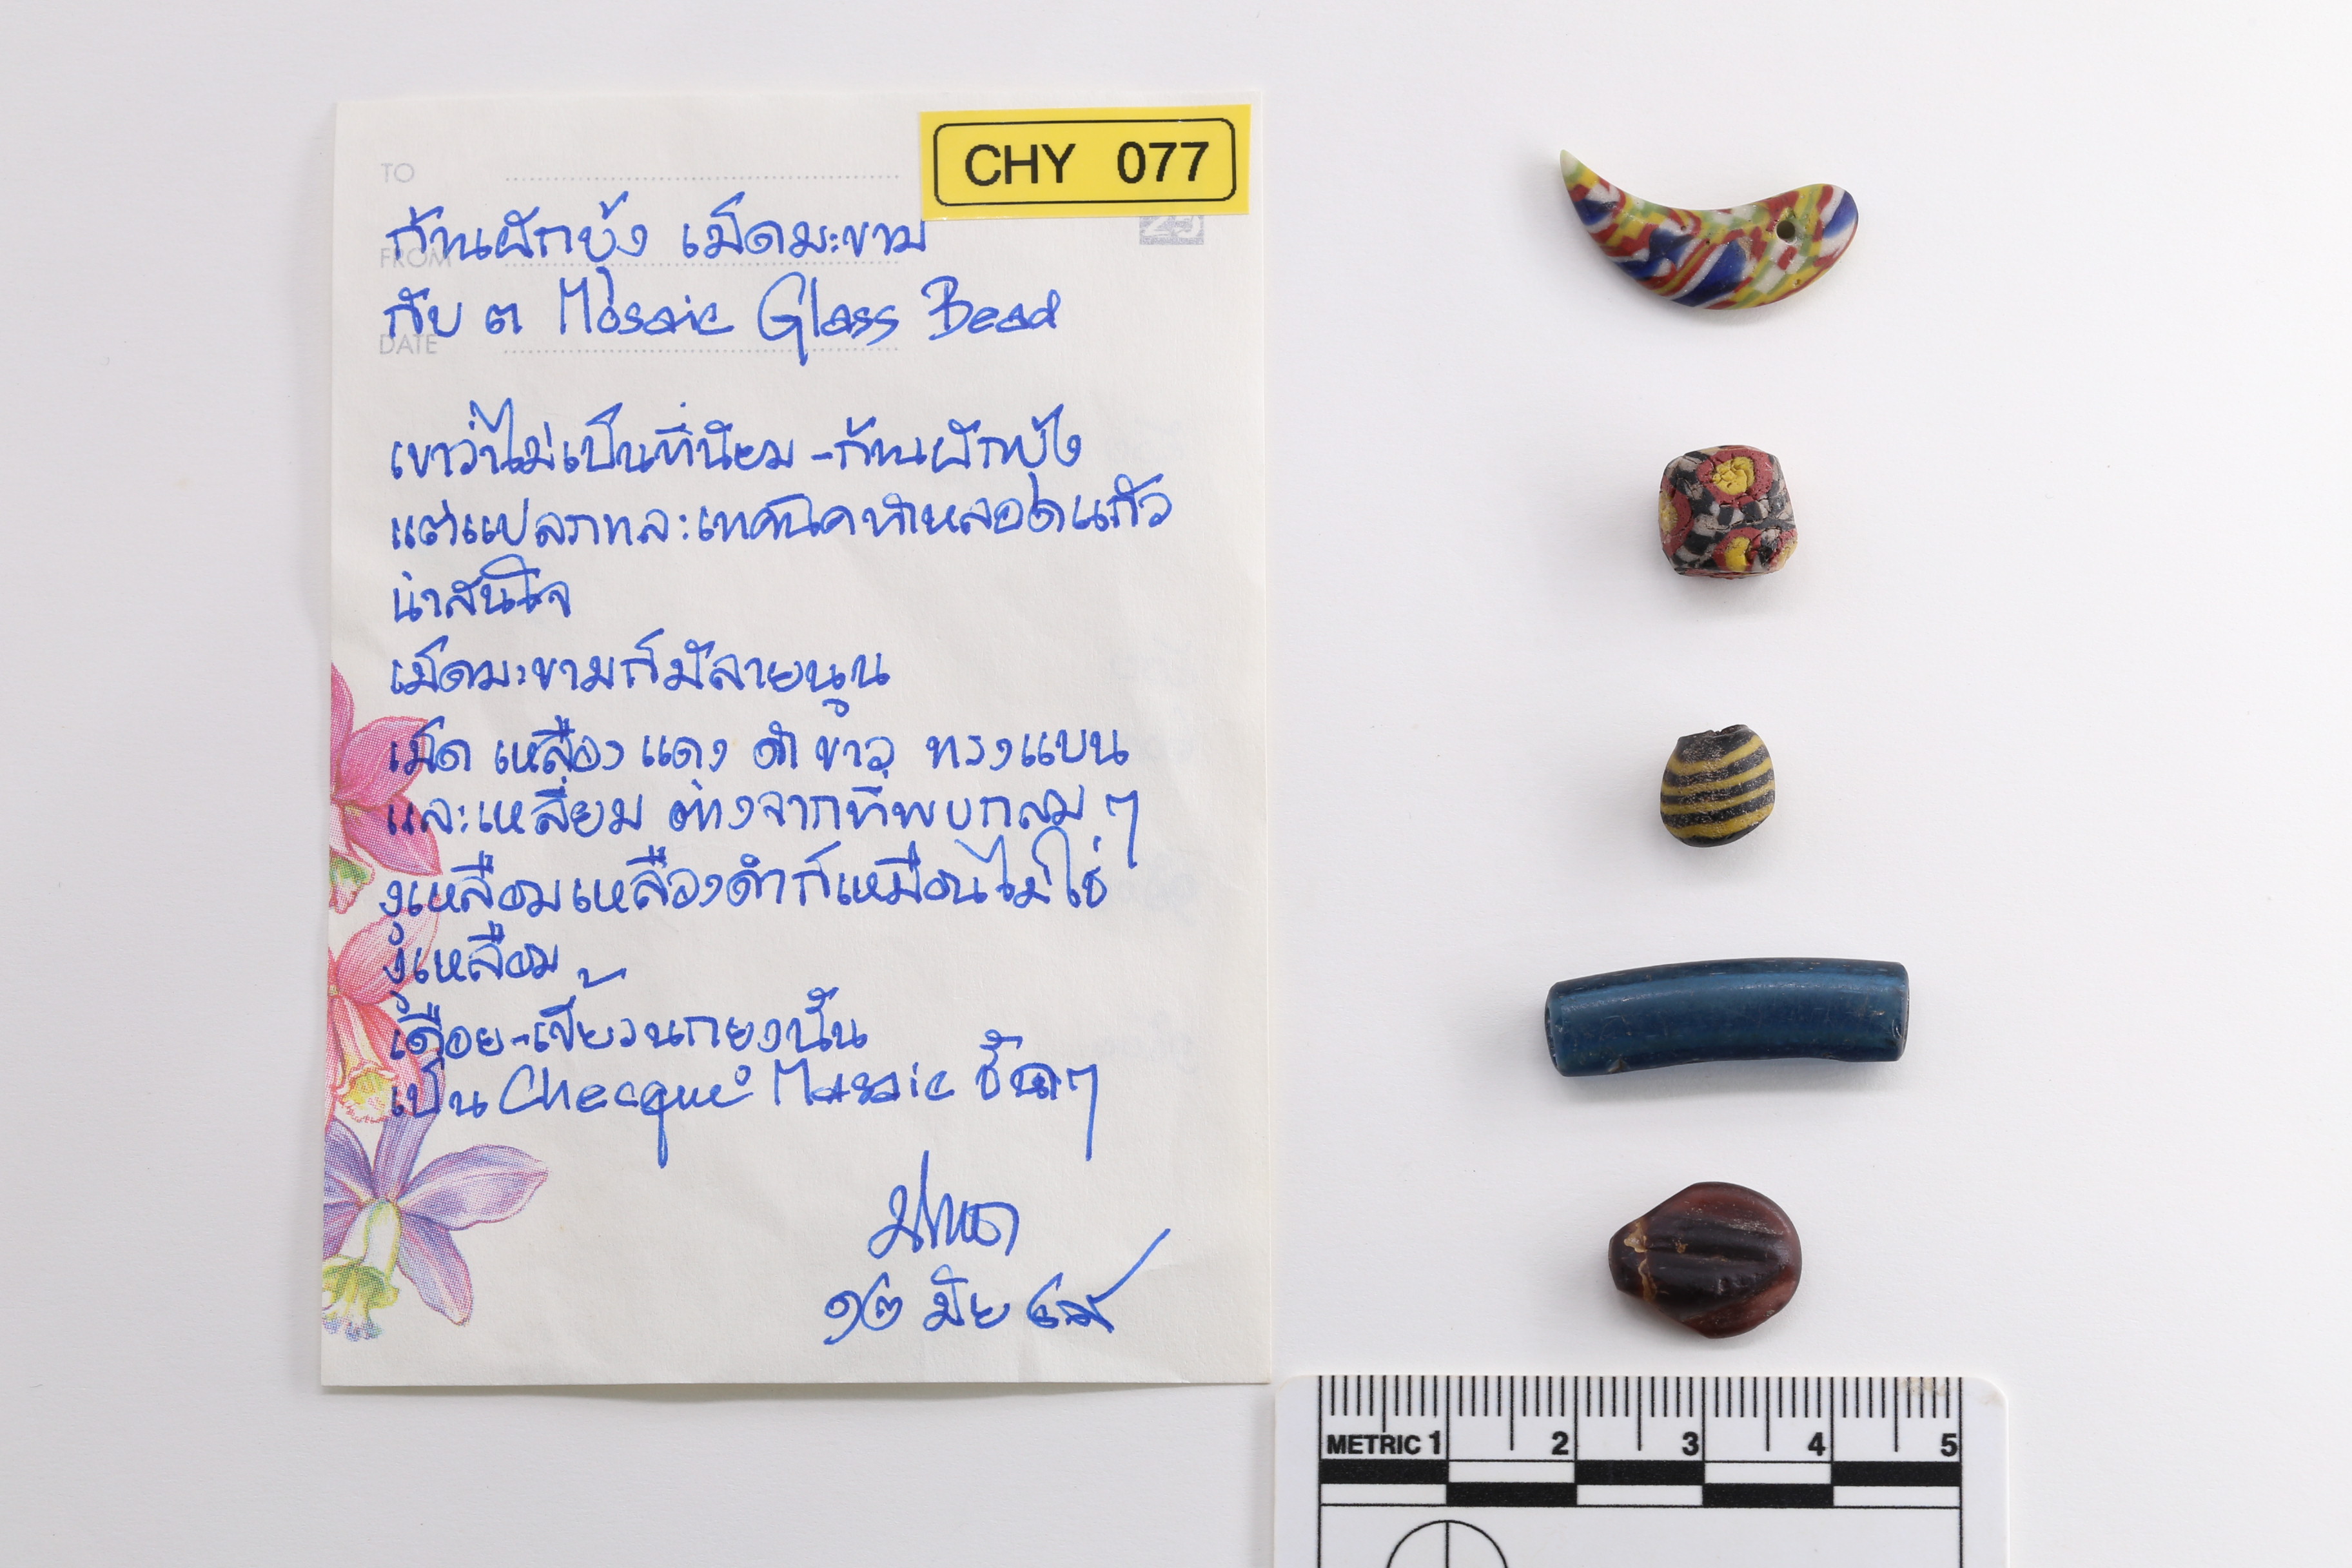 CHY 077
TO
25
ก้านผักบุ้ง เม็ดมะขาม
FROM
กับ ๓ Mosaic Glass Bead
DATE
เขาว่าไม่เป็นที่นิยม - ก้านผักบุ้ง
แต่แปลกและเทคนิคทำหลอดแก้ว
น่าสนใจ
เม็ดมะขามก็มีลายนูน
เม็ด เหลือง แดง ดำ ขาว ทรงแบน
และเหลี่ยม ต่างจากที่พบกลม ๆ
งูเหลือมเหลืองดำก็เหมือนไม่ใช่
งูเหลือม
เดือย-เขี้ยวนกยูงนั้น
เป็น Checque Mosaic ชั้นๆ
๑๒ มิย
METRIC 1 2 3 4 5